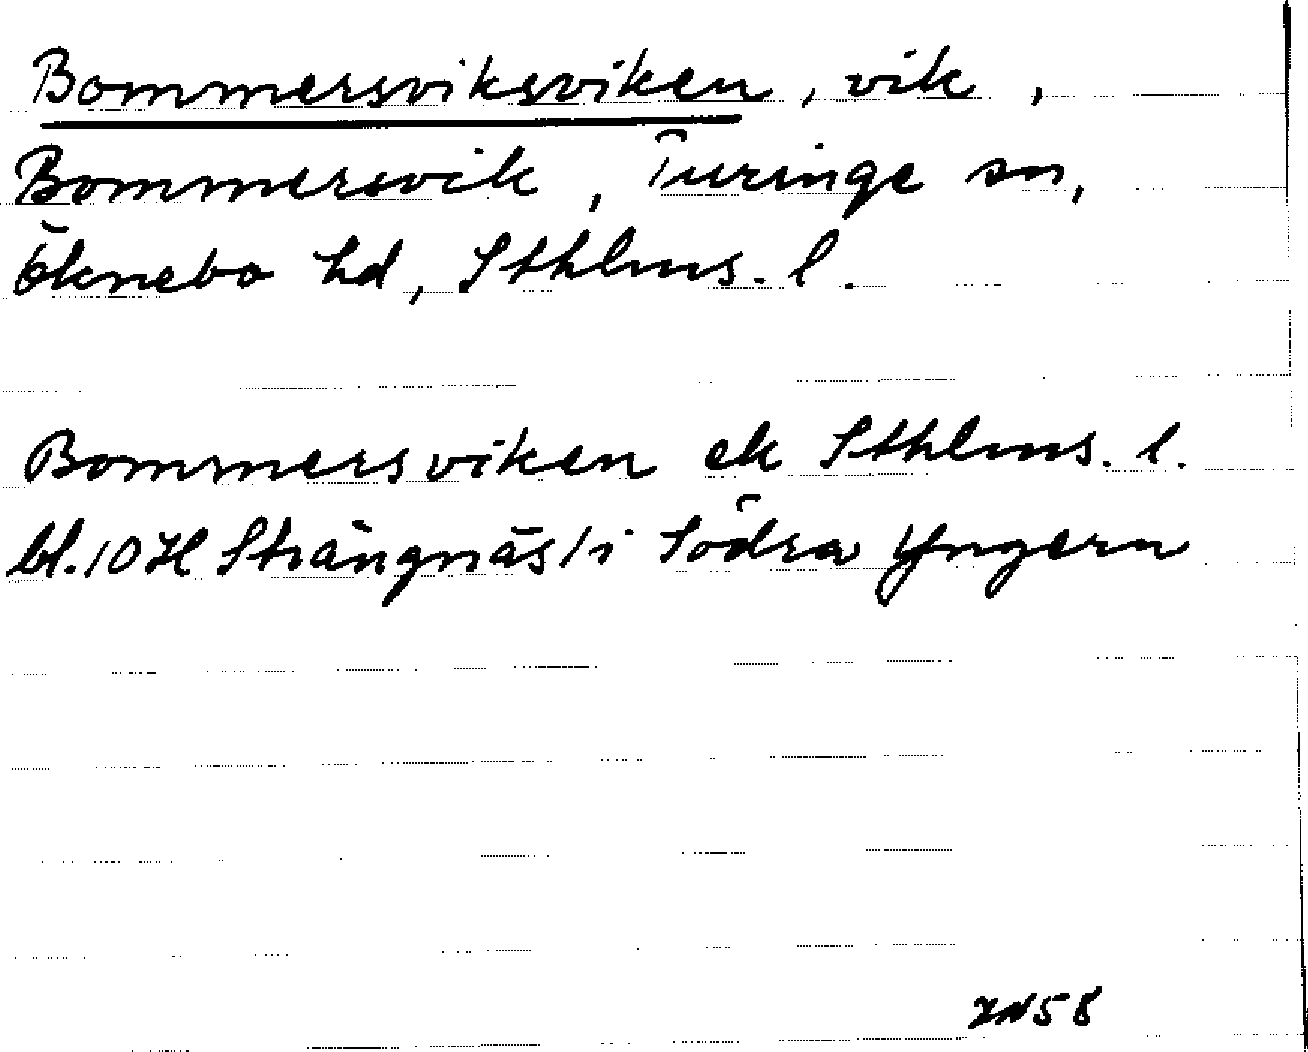 Bommersviksviken, vik,
Bommersvik, Turinge sn,
Öknebo hd, Sthlms. l.
Bommersviken ek Sthlms. l.
bl. 10 H Strängnäs/i Södra Yngern